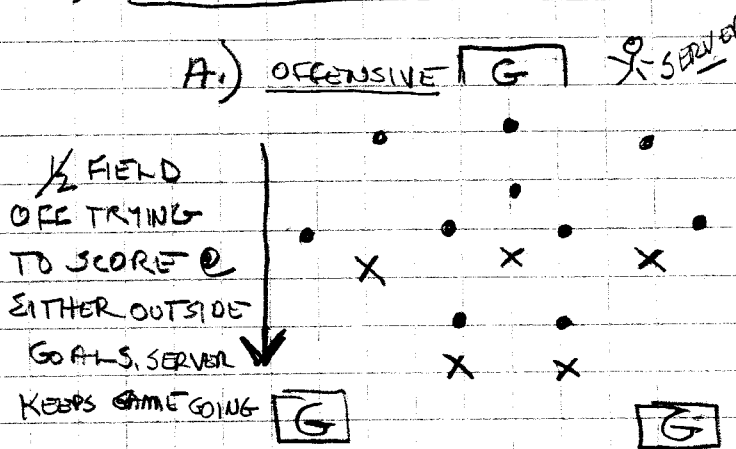 A.) OFFENSIVE G SERVER
1/2 FIELD
OFF TRYING
TO SCORE @
EITHER OUTSIDE
GOALS. SERVER
KEEPS GAME GOING
G G